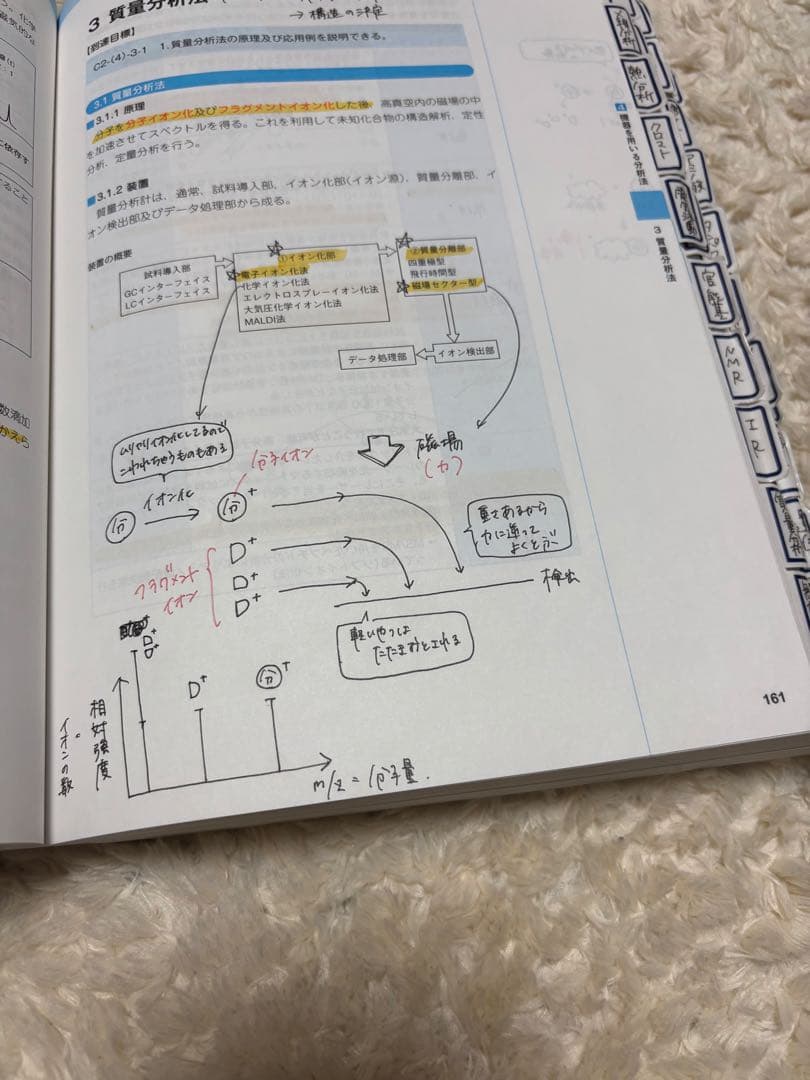 3 質量分析法
→ 構造の決定
【到達目標】
C2-(4)-3-1 1.質量分析法の原理及び応用例を説明できる。
3.1 質量分析法
■3.1.1 原理
分子を分子イオン化及びフラグメントイオン化した後、高真空内の磁場の中
を加速させてスペクトルを得る。これを利用して未知化合物の構造解析、定性
分析、定量分析を行う。
■3.1.2 装置
質量分析計は、通常、試料導入部、イオン化部(イオン源)、質量分離部、イ
オン検出部及びデータ処理部から成る。
装置の概要
試料導入部
GCインターフェイス
LCインターフェイス
①イオン化部
電子イオン化法
化学イオン化法
エレクトロスプレーイオン化法
大気圧化学イオン化法
MALDI法
②質量分離部
四重極型
飛行時間型
磁場セクター型
データ処理部
イオン検出部
ムリやりイオン化してるので
こわれちゃうものもある
磁場
(力)
分子イオン
イオン化
分
分+
D+
D+
D+
フラグメント
イオン
重さあるから
力に逆って
よくとぶ
検出
軽いやつは
たたきおとされる
D+
D+
D+
分+
相対強度
=
イオンの数
m/z = 分子量.
161
4 機器を用いる分析法
3 質量分析法
熱分析
クロスト
NMR
IR
数滴加
かえら
に依存す
ること
化学
磁気的な